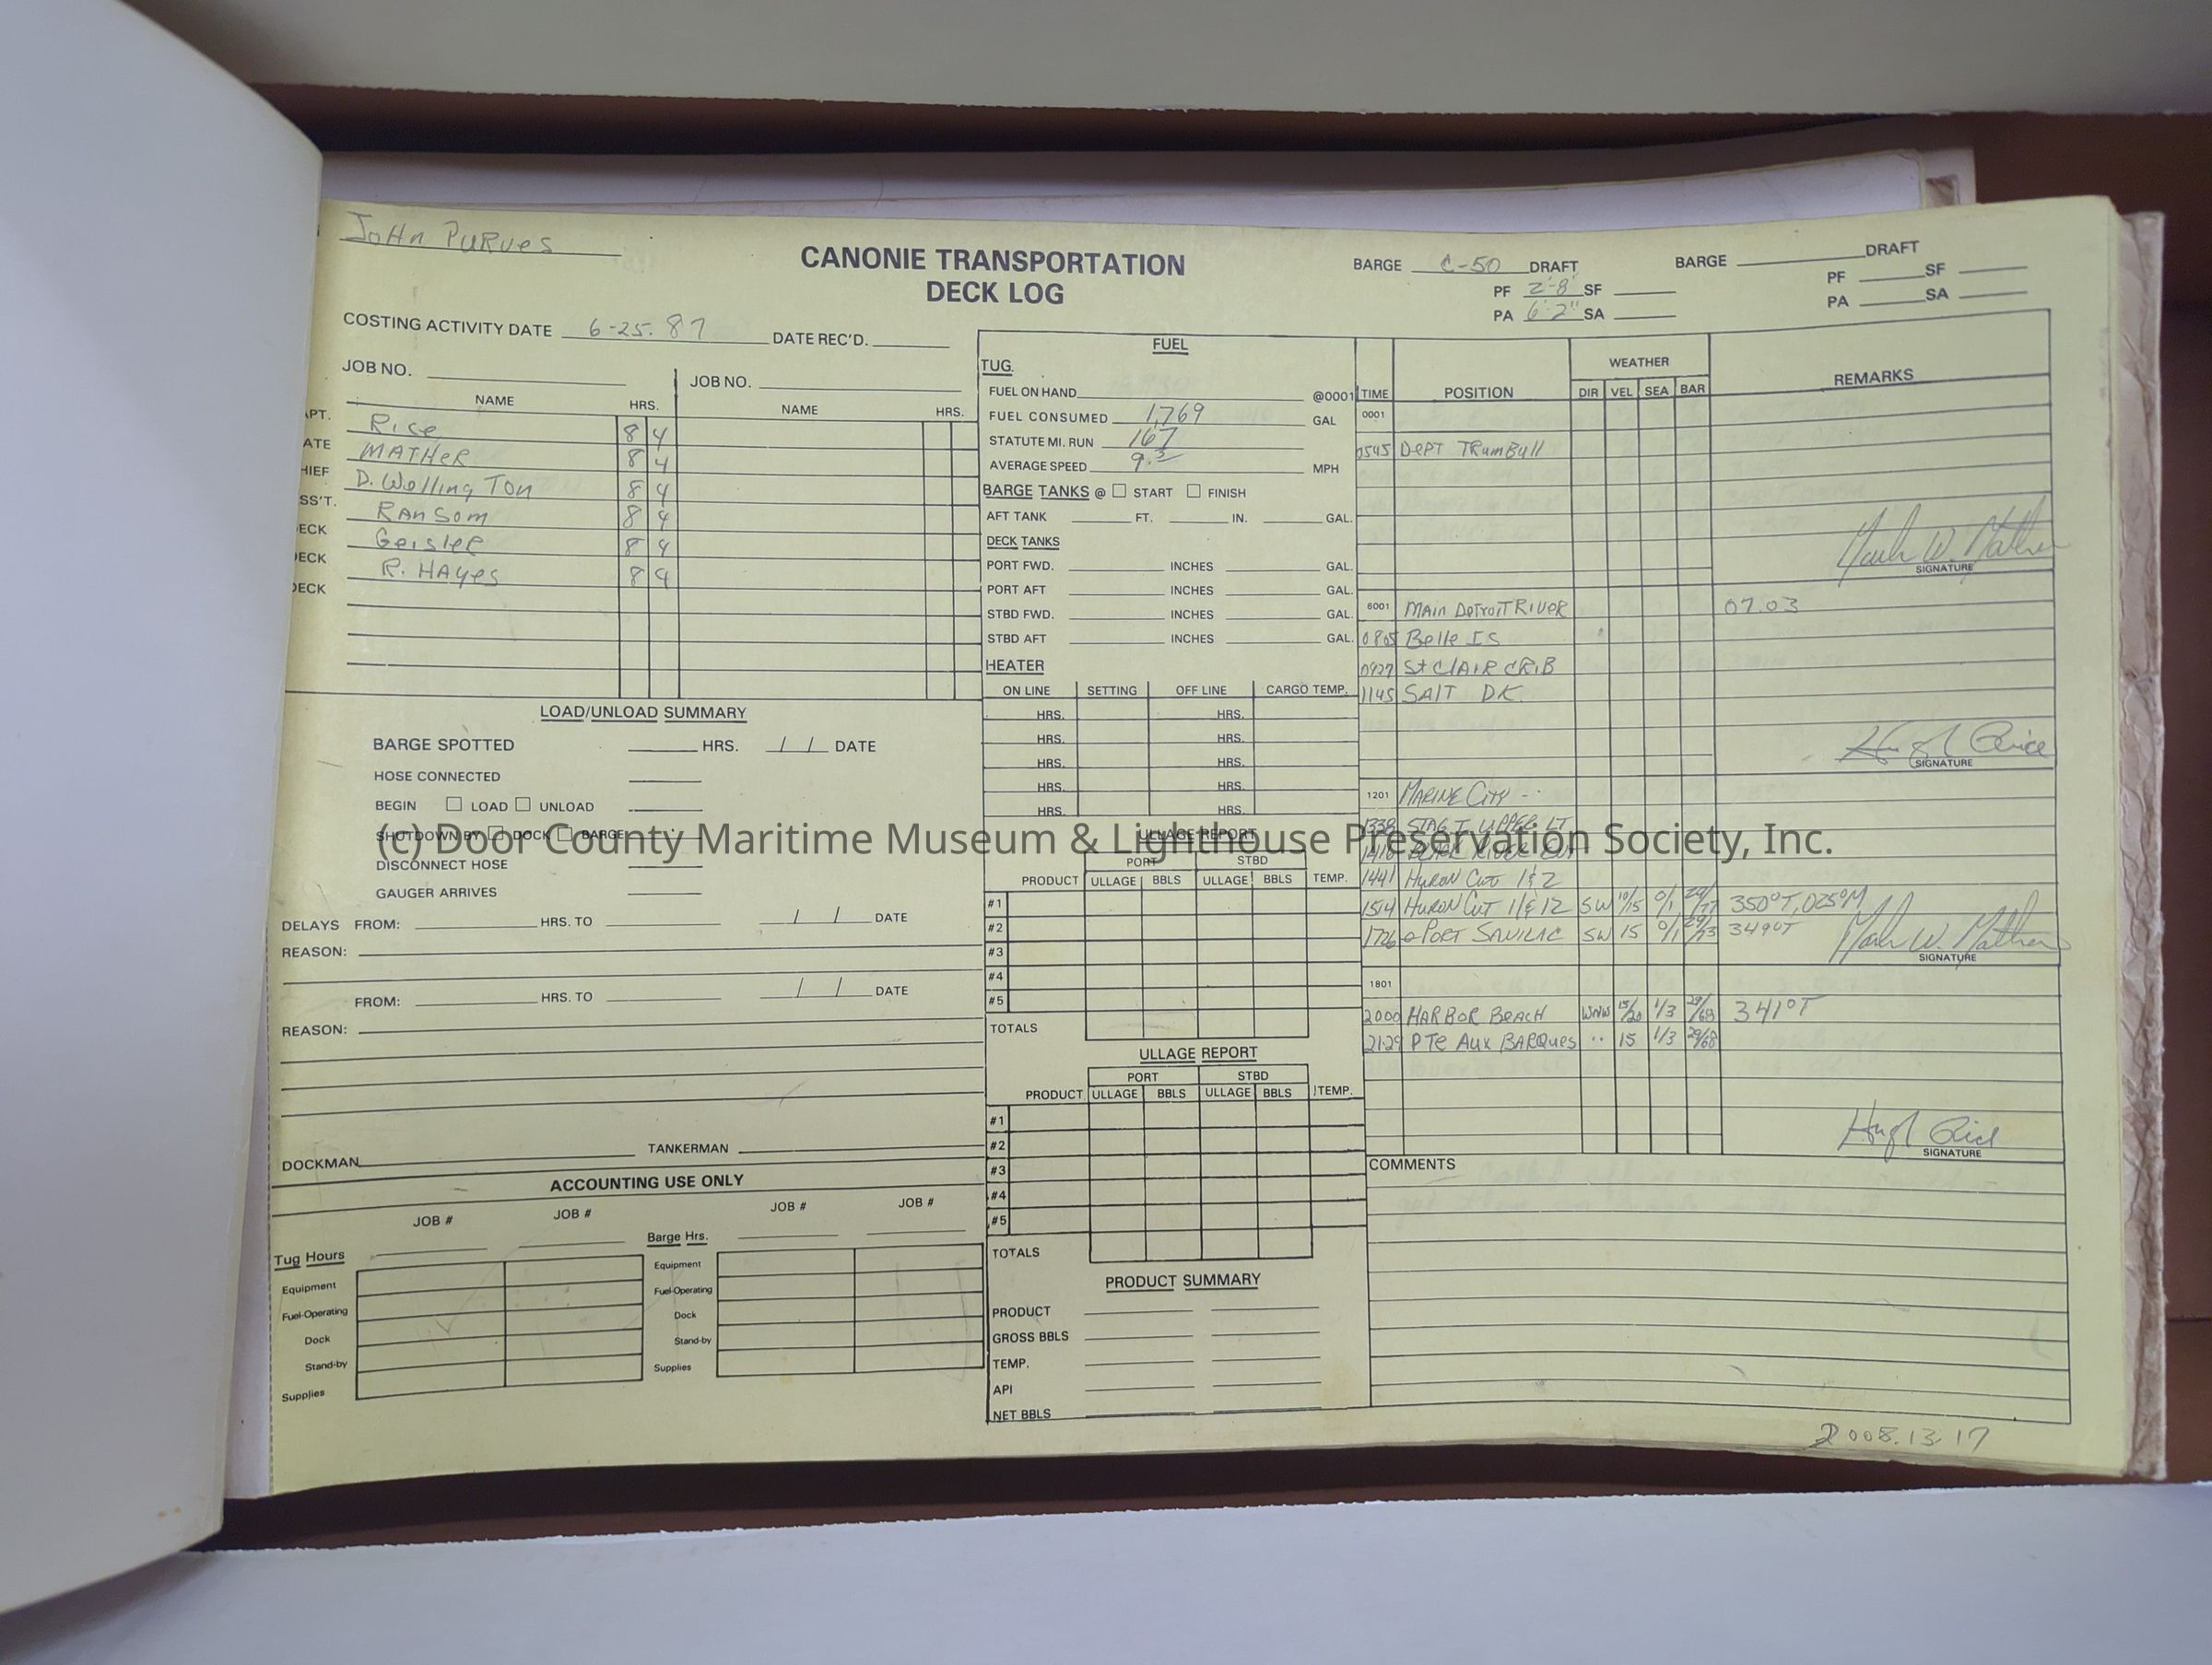 John Purves
CANONIE TRANSPORTATION
DECK LOG
BARGE C-50 DRAFT
PF 2'-8" SF
PA 6'2" SA
BARGE DRAFT
PF SF
PA SA
COSTING ACTIVITY DATE 6-25-87 DATE REC'D.
JOB NO. JOB NO.
NAME HRS. NAME HRS.
APT. Rice 8 4
ATE MATHER 8 4
HIEF D. Welling Ton 8 4
SS'T. RANSOM 8 4
ECK Geisler 8 4
DECK R. HAYes 8 4
DECK
LOAD/UNLOAD SUMMARY
BARGE SPOTTED HRS. / / DATE
HOSE CONNECTED
BEGIN LOAD UNLOAD
SHUTDOWN BY DOCK BARGE
DISCONNECT HOSE
GAUGER ARRIVES
DELAYS FROM: HRS. TO / / DATE
REASON:
FROM: HRS. TO / / DATE
REASON:
DOCKMAN TANKERMAN
ACCOUNTING USE ONLY
JOB # JOB # JOB # JOB #
Tug Hours Barge Hrs.
Equipment Equipment
Fuel-Operating Fuel-Operating
Dock Dock
Stand-by Stand-by
Supplies Supplies
FUEL
TUG
FUEL ON HAND @0001
FUEL CONSUMED 1,769 GAL
STATUTE MI. RUN 167
AVERAGE SPEED 9.3 MPH
BARGE TANKS @ START FINISH
AFT TANK FT. IN. GAL.
DECK TANKS
PORT FWD. INCHES GAL.
PORT AFT INCHES GAL.
STBD FWD. INCHES GAL.
STBD AFT INCHES GAL.
HEATER
ON LINE SETTING OFF LINE CARGO TEMP.
HRS. HRS.
HRS. HRS.
HRS. HRS.
HRS. HRS.
HRS. HRS.
ULLAGE REPORT
PORT STBD
PRODUCT ULLAGE BBLS ULLAGE BBLS TEMP.
#1
#2
#3
#4
#5
TOTALS
ULLAGE REPORT
PORT STBD
PRODUCT ULLAGE BBLS ULLAGE BBLS TEMP.
#1
#2
#3
#4
#5
TOTALS
PRODUCT SUMMARY
PRODUCT
GROSS BBLS
TEMP.
API
NET BBLS
WEATHER
TIME POSITION DIR VEL SEA BAR REMARKS
0001
0545 DePT TRumBull
Mark W. Mather
SIGNATURE
6001 MAIN DeTroiT RIVER 07.03
0805 Belle IS
0927 St CLAIR CRIB
1145 SALT DK.
Hugh Rice
SIGNATURE
1201 MARINE CITY
1338 STAG I. UPPER LT
1441 HURON CUT 1 & 2
1514 HURON CUT 11 & 12 SW 10/15 0/1 29/77 350°T, 025°M
1726 PORT SANILAC SW 15 0/1 29/73 349°T
Mark W. Mather
SIGNATURE
1801
2000 HARBOR BeACH WNW 15/20 1/3 29/68 341°T
2129 PTe Aux BARQues 15 1/3 29/68
Hugh Rice
SIGNATURE
COMMENTS
2008.13.17
(c) Door County Maritime Museum & Lighthouse Preservation Society, Inc.